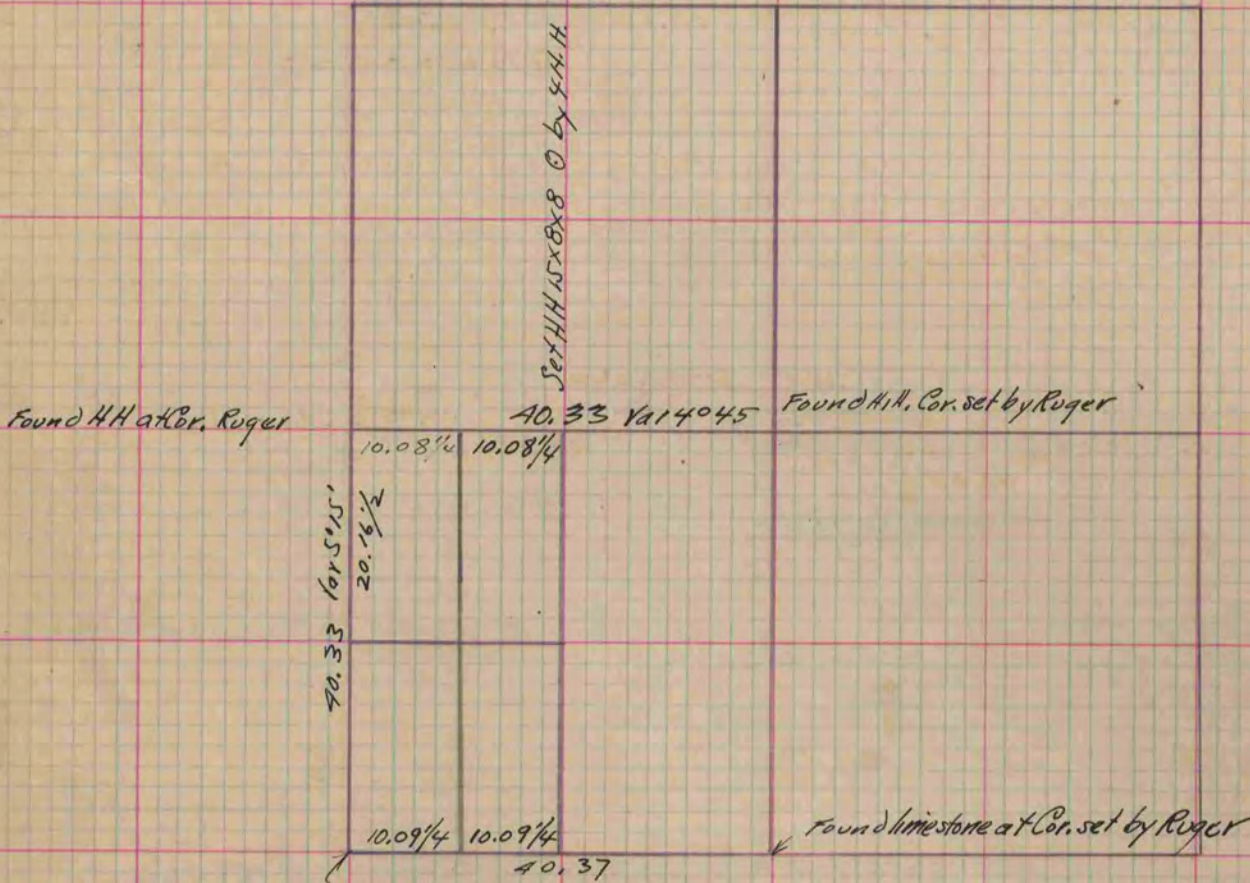 Set HH 15x8x8 ⊙ by 4 H.H.
Found HH at Cor. Ruger
40.33 Var 4°45
Found H.H. Cor. set by Ruger
10.08 1/4 10.08 1/4
20.16 1/2
40.33 Var 5°15'
10.09 1/4 10.09 1/4
40.37
Found limestone at Cor. set by Ruger